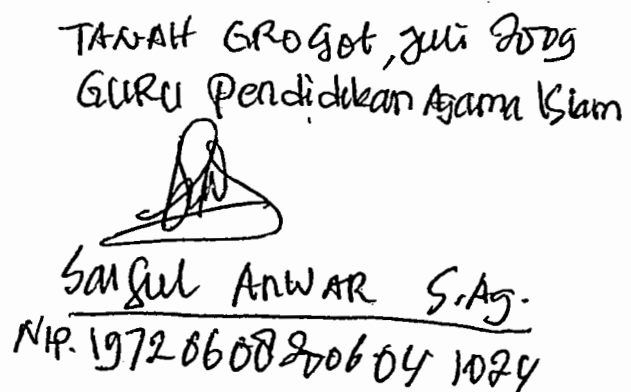 TANAH GROGOT, Juli 2009
GURU Pendidikan Agama Islam
Saiful ANWAR S.Ag.
NIP. 19720608200604 1024